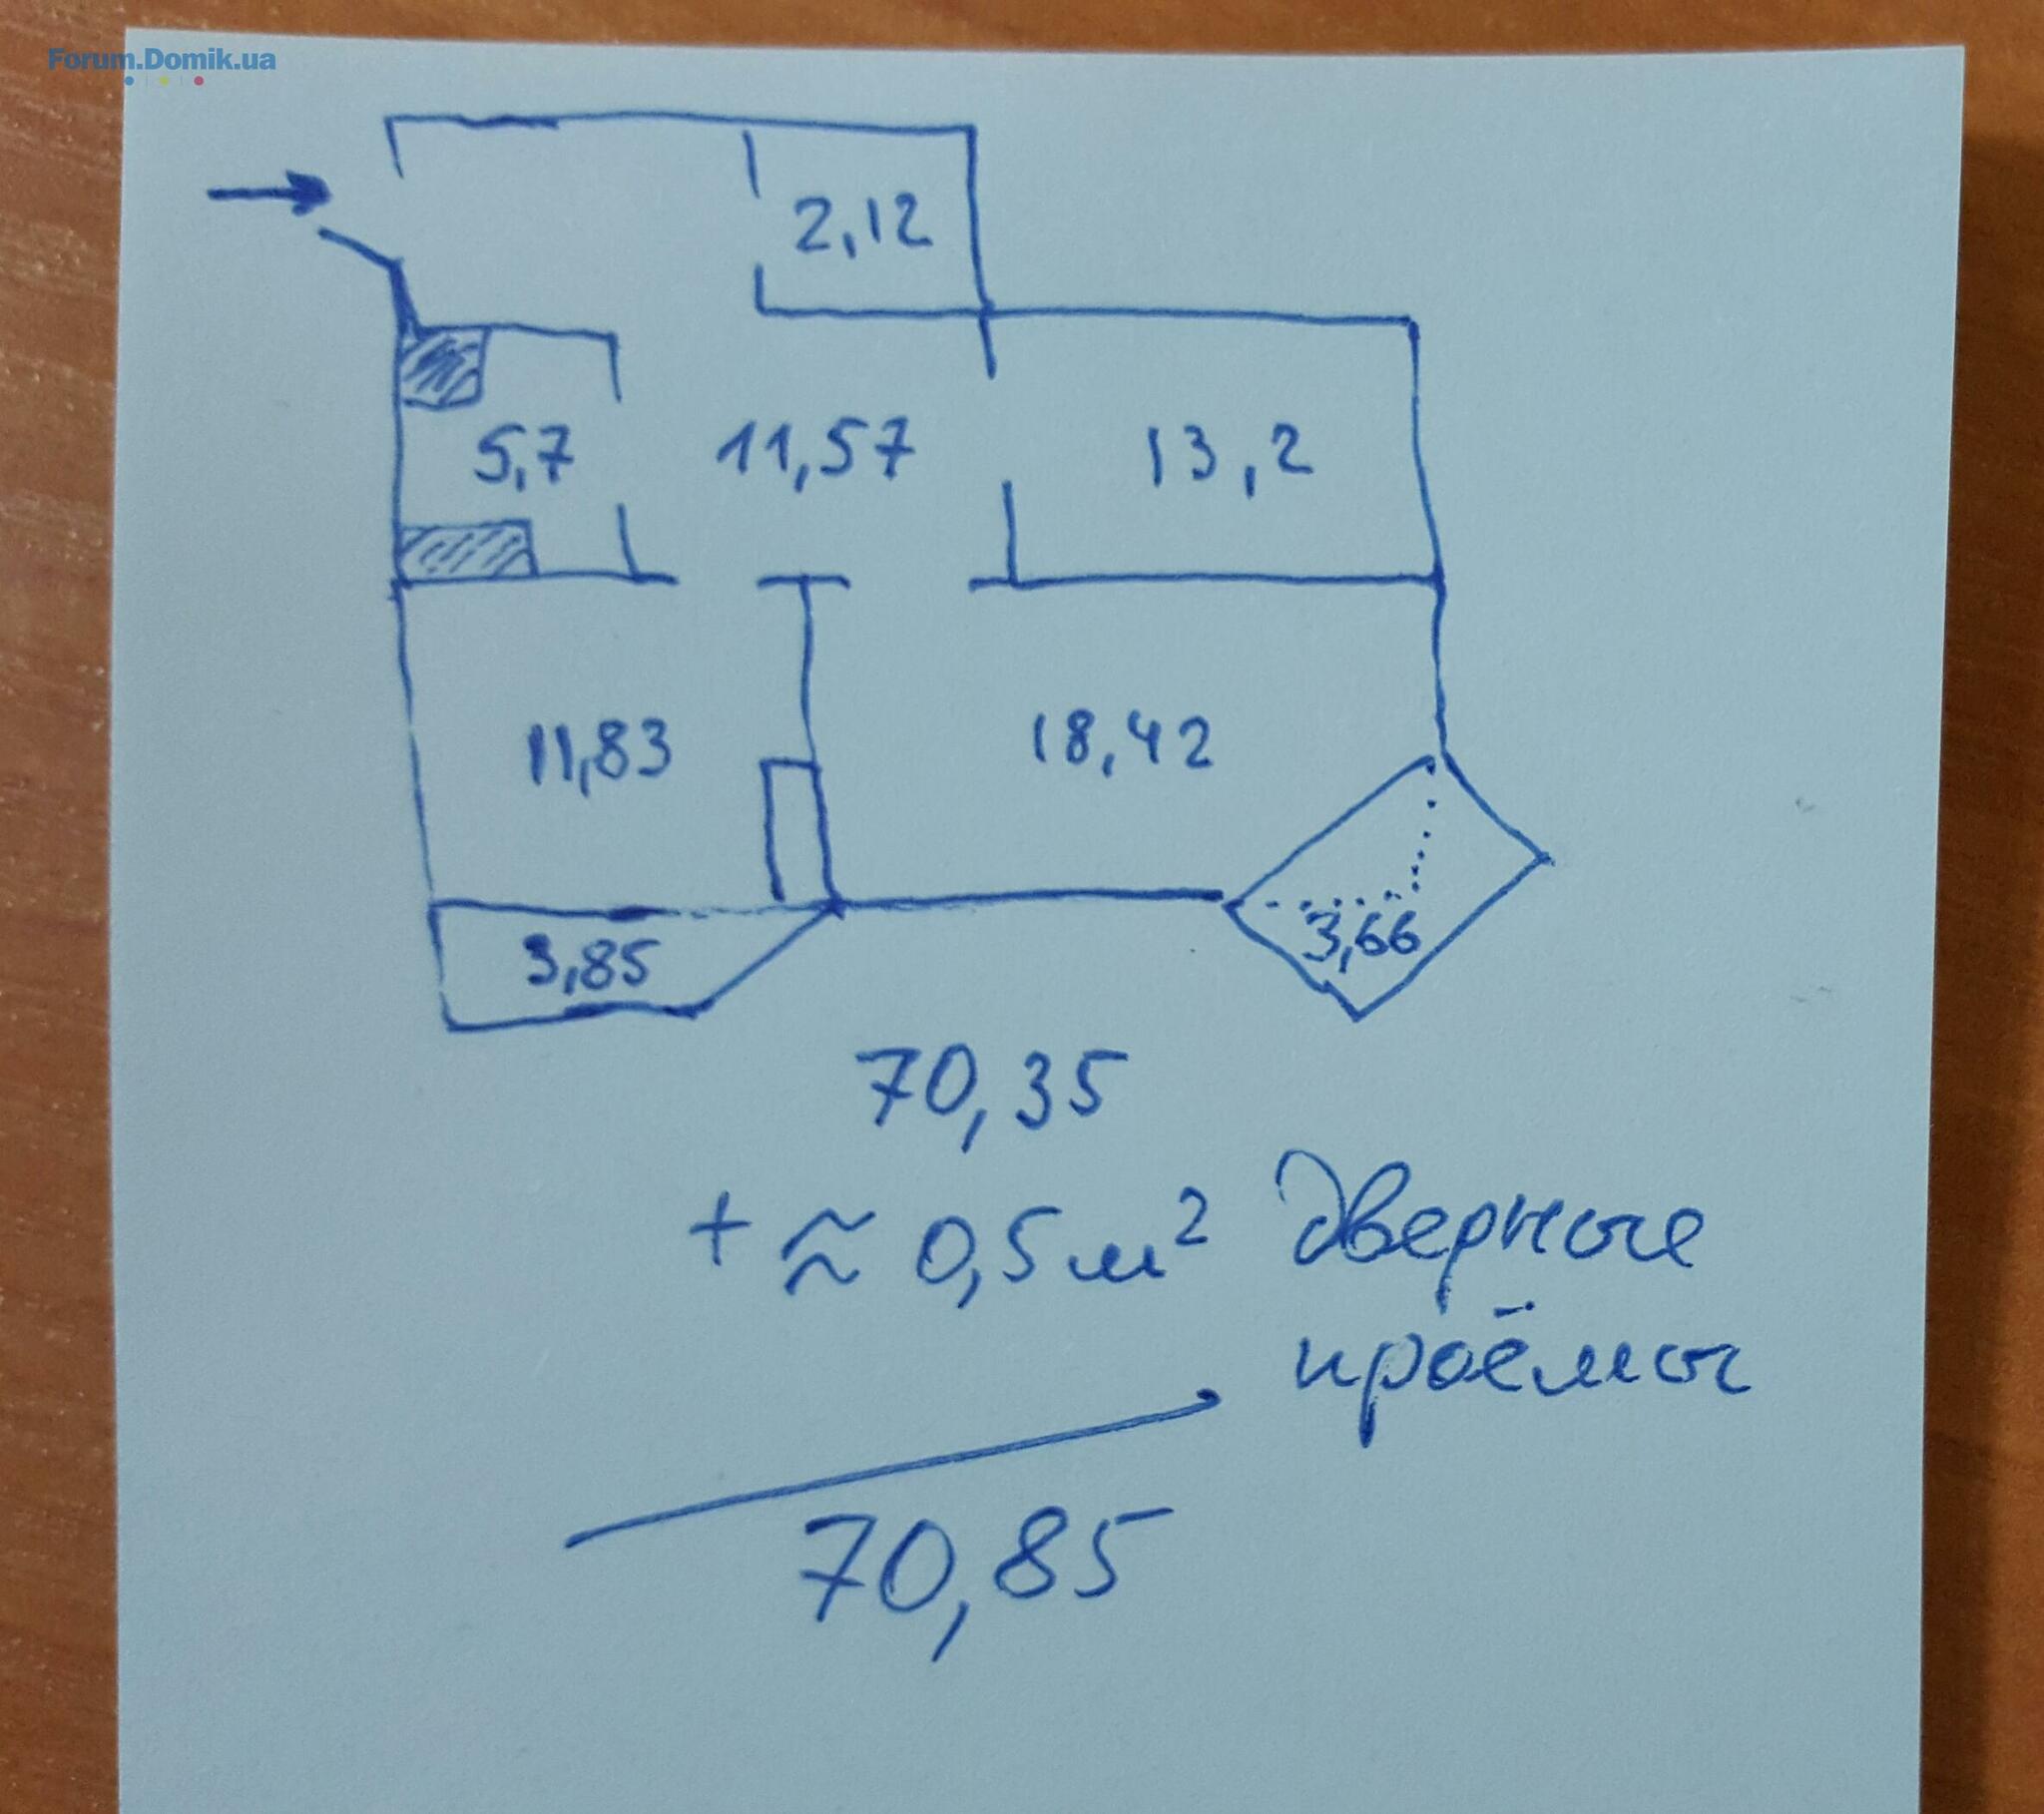 Forum.Domik.ua
2,12
5,7 11,57 13,2
11,83 18,42
3,85 3,66
70,35
+ ≈ 0,5 м² дверные
проёмы
70,85